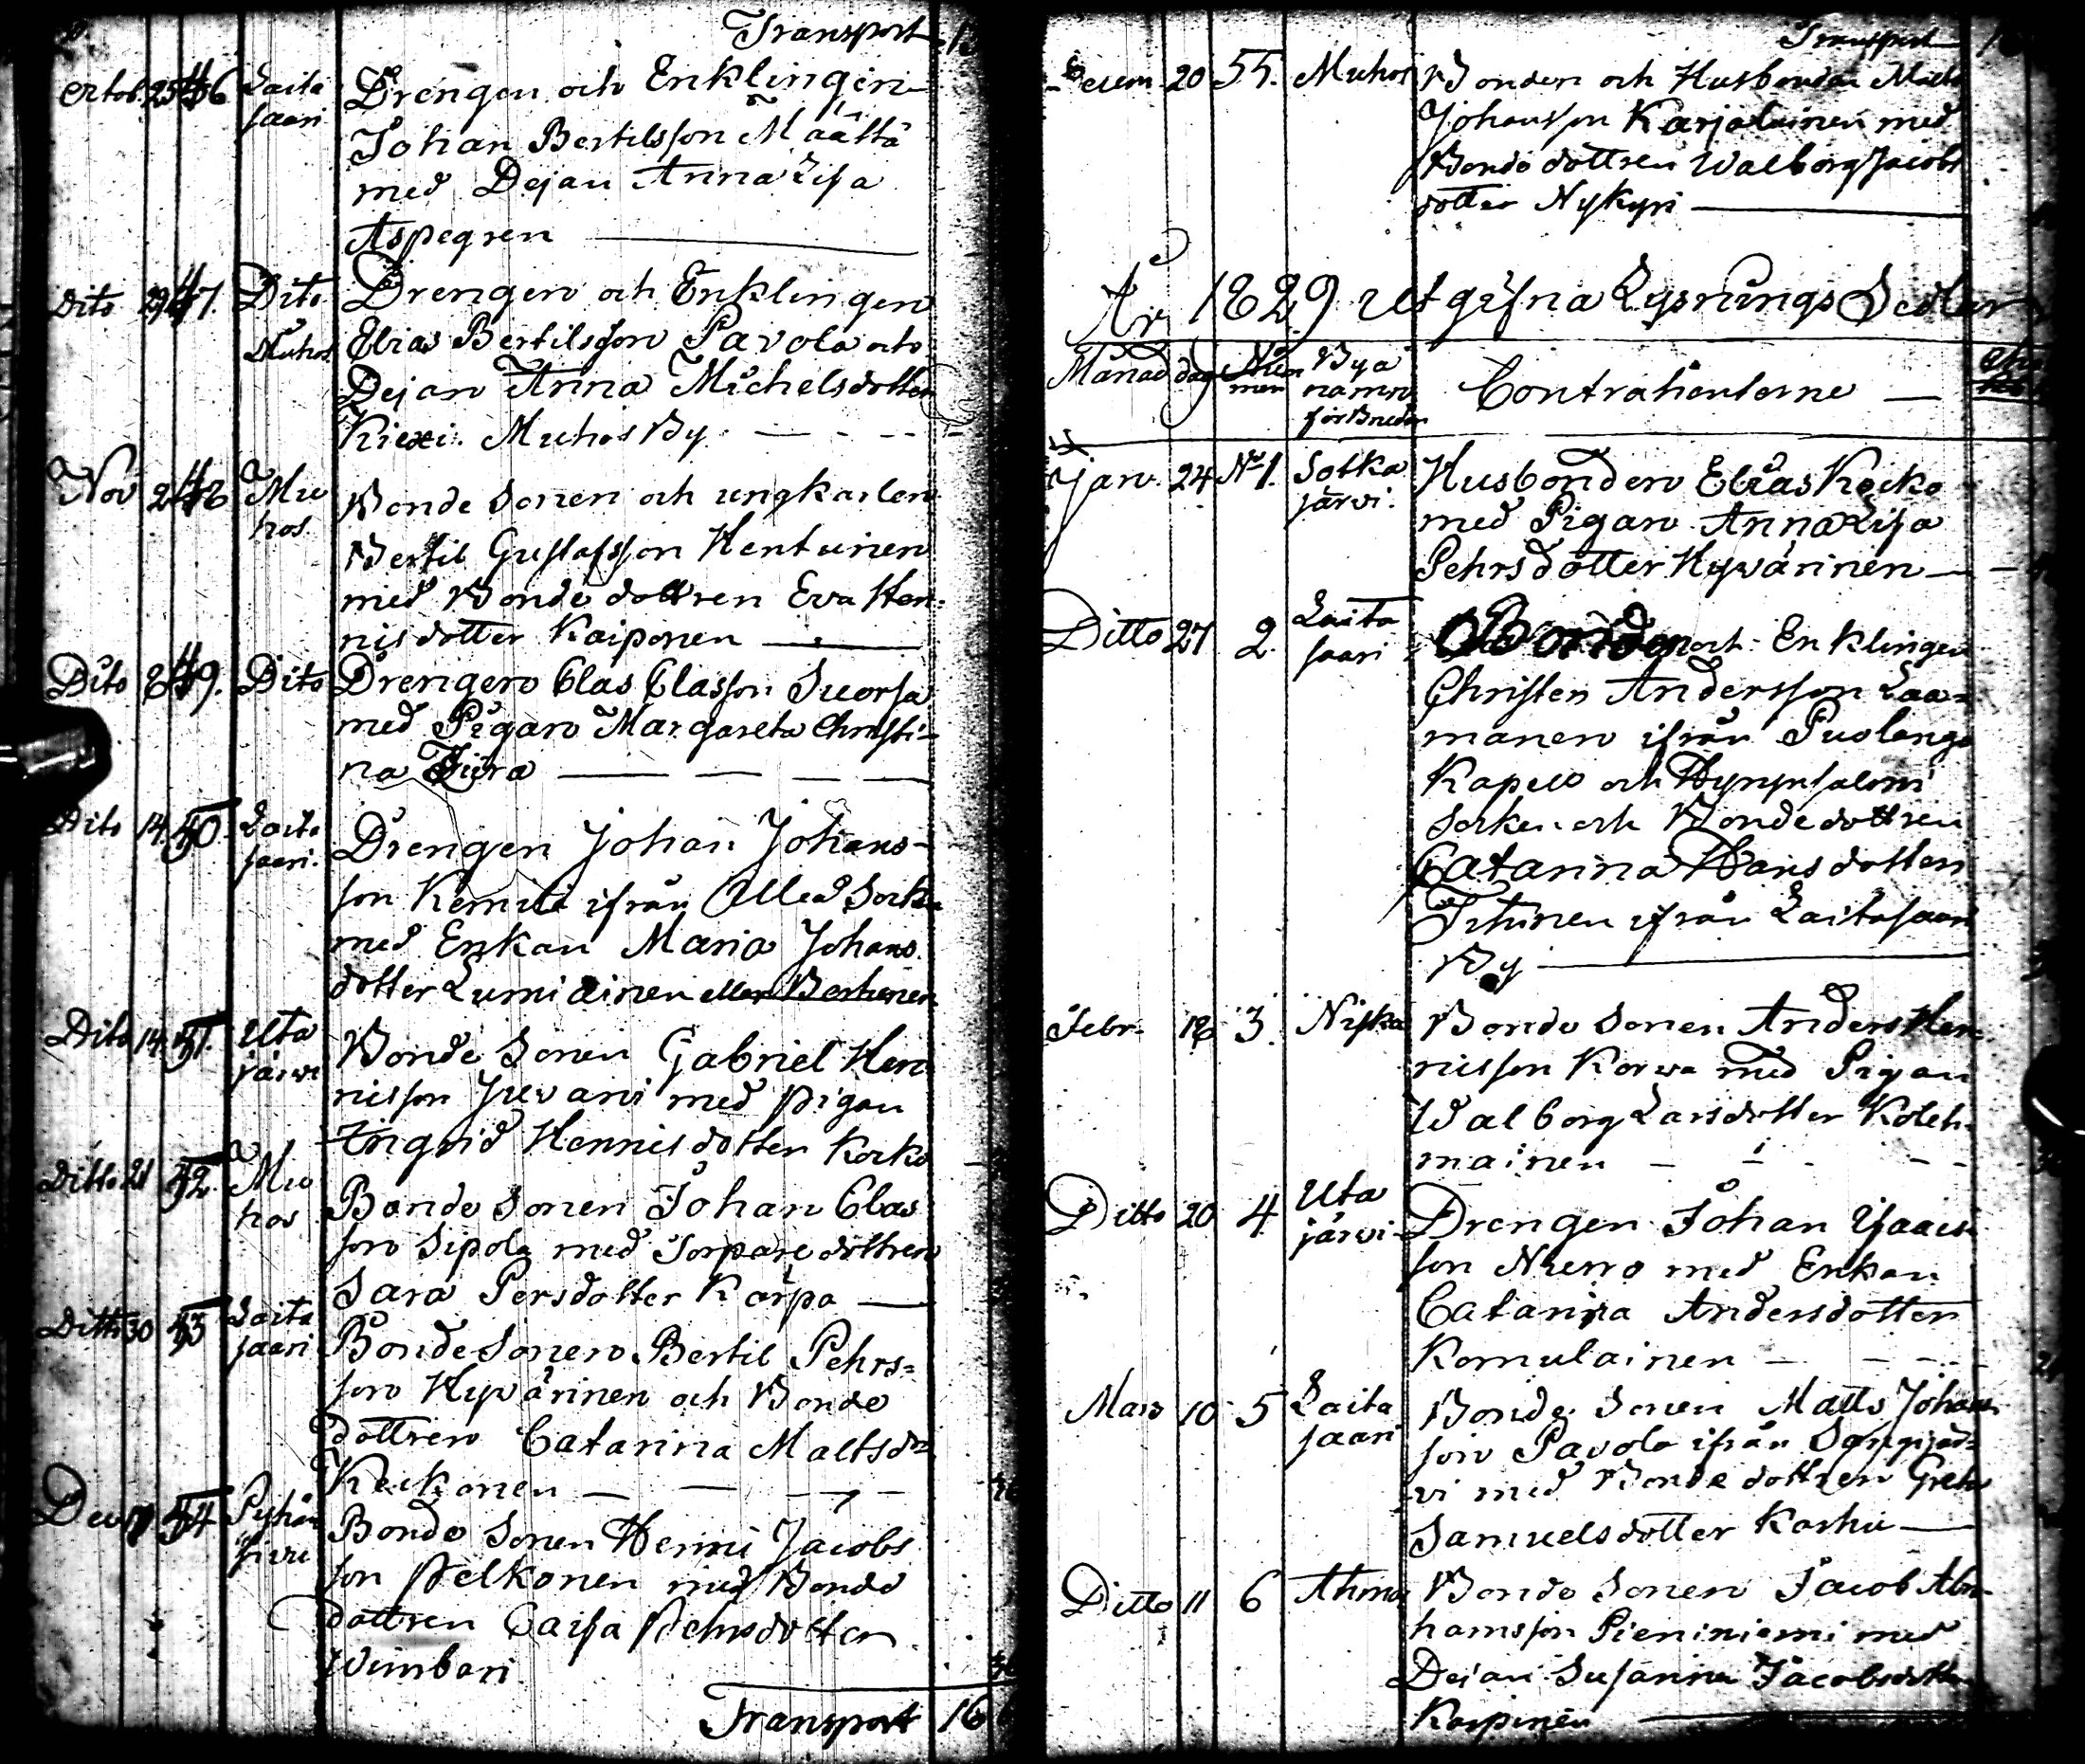 Transport
Octob. 25 46 Laita Drengen och Enklingen
saari Johan Bertilsson Määttä
med Dejan Anna Lisa
Aspegren
Dito 29 47. Dito Drengen och Enklingen
Muhos Elias Bertilsson Pavola och
Dejan Anna Michelsdotter
Kiexi. Muhos By.
Nov 2 48 Mu Bonde Sonen och ungkarlen
hos Bertil Gustafsson Hentuinen
med Bonde dottren Eva Hen=
nisdotter Kaiponen
Dito 8 49. Dito Drengen Clas Classon Suorsa
med Pigan Margareta Christi-
na
Dito 14 50. Laita Drengen Johan Johans-
saari. son Kemilä ifrån Uleå Sokn
med Enkan Maria Johans
dotter Lumiainen eller
Dito 14 51. Uta Bonde Sonen Gabriel Hen
järvi nisson Juvani med Pigan
Ingrid Hennisdotter Korko
Ditto 21 52. Mu Bonde Sonen Johan Clas
hos son Sipola med Torpare dottren
Sara Persdotter Karpa
Ditto 30 53 Laita Bonde Sonen Bertil Pehrs=
saari son Hyvärinen och Bonde
dottren Catarina Mattsdr
Keikonen
Dec 54 Pyhän Bonde Sonen Henric Jacobs
sivu son Pelkonen med Bonde
dottren Caisa Pehrsdotter
Wimbari
Transport 16
Transport
Decem. 20 55. Muhos Bonden och Husbonden Matts
Johansson Karjalainen med
Bonde dottren Walborg Jacobs
dotter Nykyri
År 1829 Utgifna Lysnings Sedlar
Månad dag Num By a
mer namn Contrahenterne
för Bruden
Jan. 24 No 1. Sotka Husbonden Elias Kocko
järvi. med Pigan Anna Lisa
Pehrsdotter Hyvärinen
Ditto 27 2. Laita Bonden och Enklingen
saari Christer Andersson Laa=
manen ifrån Puolango
Kapell och Hyrynsalmi
Socken och Bonde dottren
Catarina Hansdotter
Tihinen ifrån Laitasaari
By
Febr. 18 3. Niska Bonde Sonen Anders Hen
nisson Korva med Pigan
Walborg Larsdotter Koleh-
mainen
Ditto 20 4. Uta Drengen Johan Isaacs
järvi son Nurro med Enkan
Catarina Andersdotter
Komulainen
Mars 10 5 Laita Bonde Sonen Matts Johans
saari son Pavola ifrån Sangijär=
vi med Bonde dottren Greta
Samuelsdotter Karhu
Ditto 11 6 Ahmas Bonde Sonen Jacob Abra
hamsson Pieniniemi med
Dejan Susanna Jacobsdotter
Karpinen